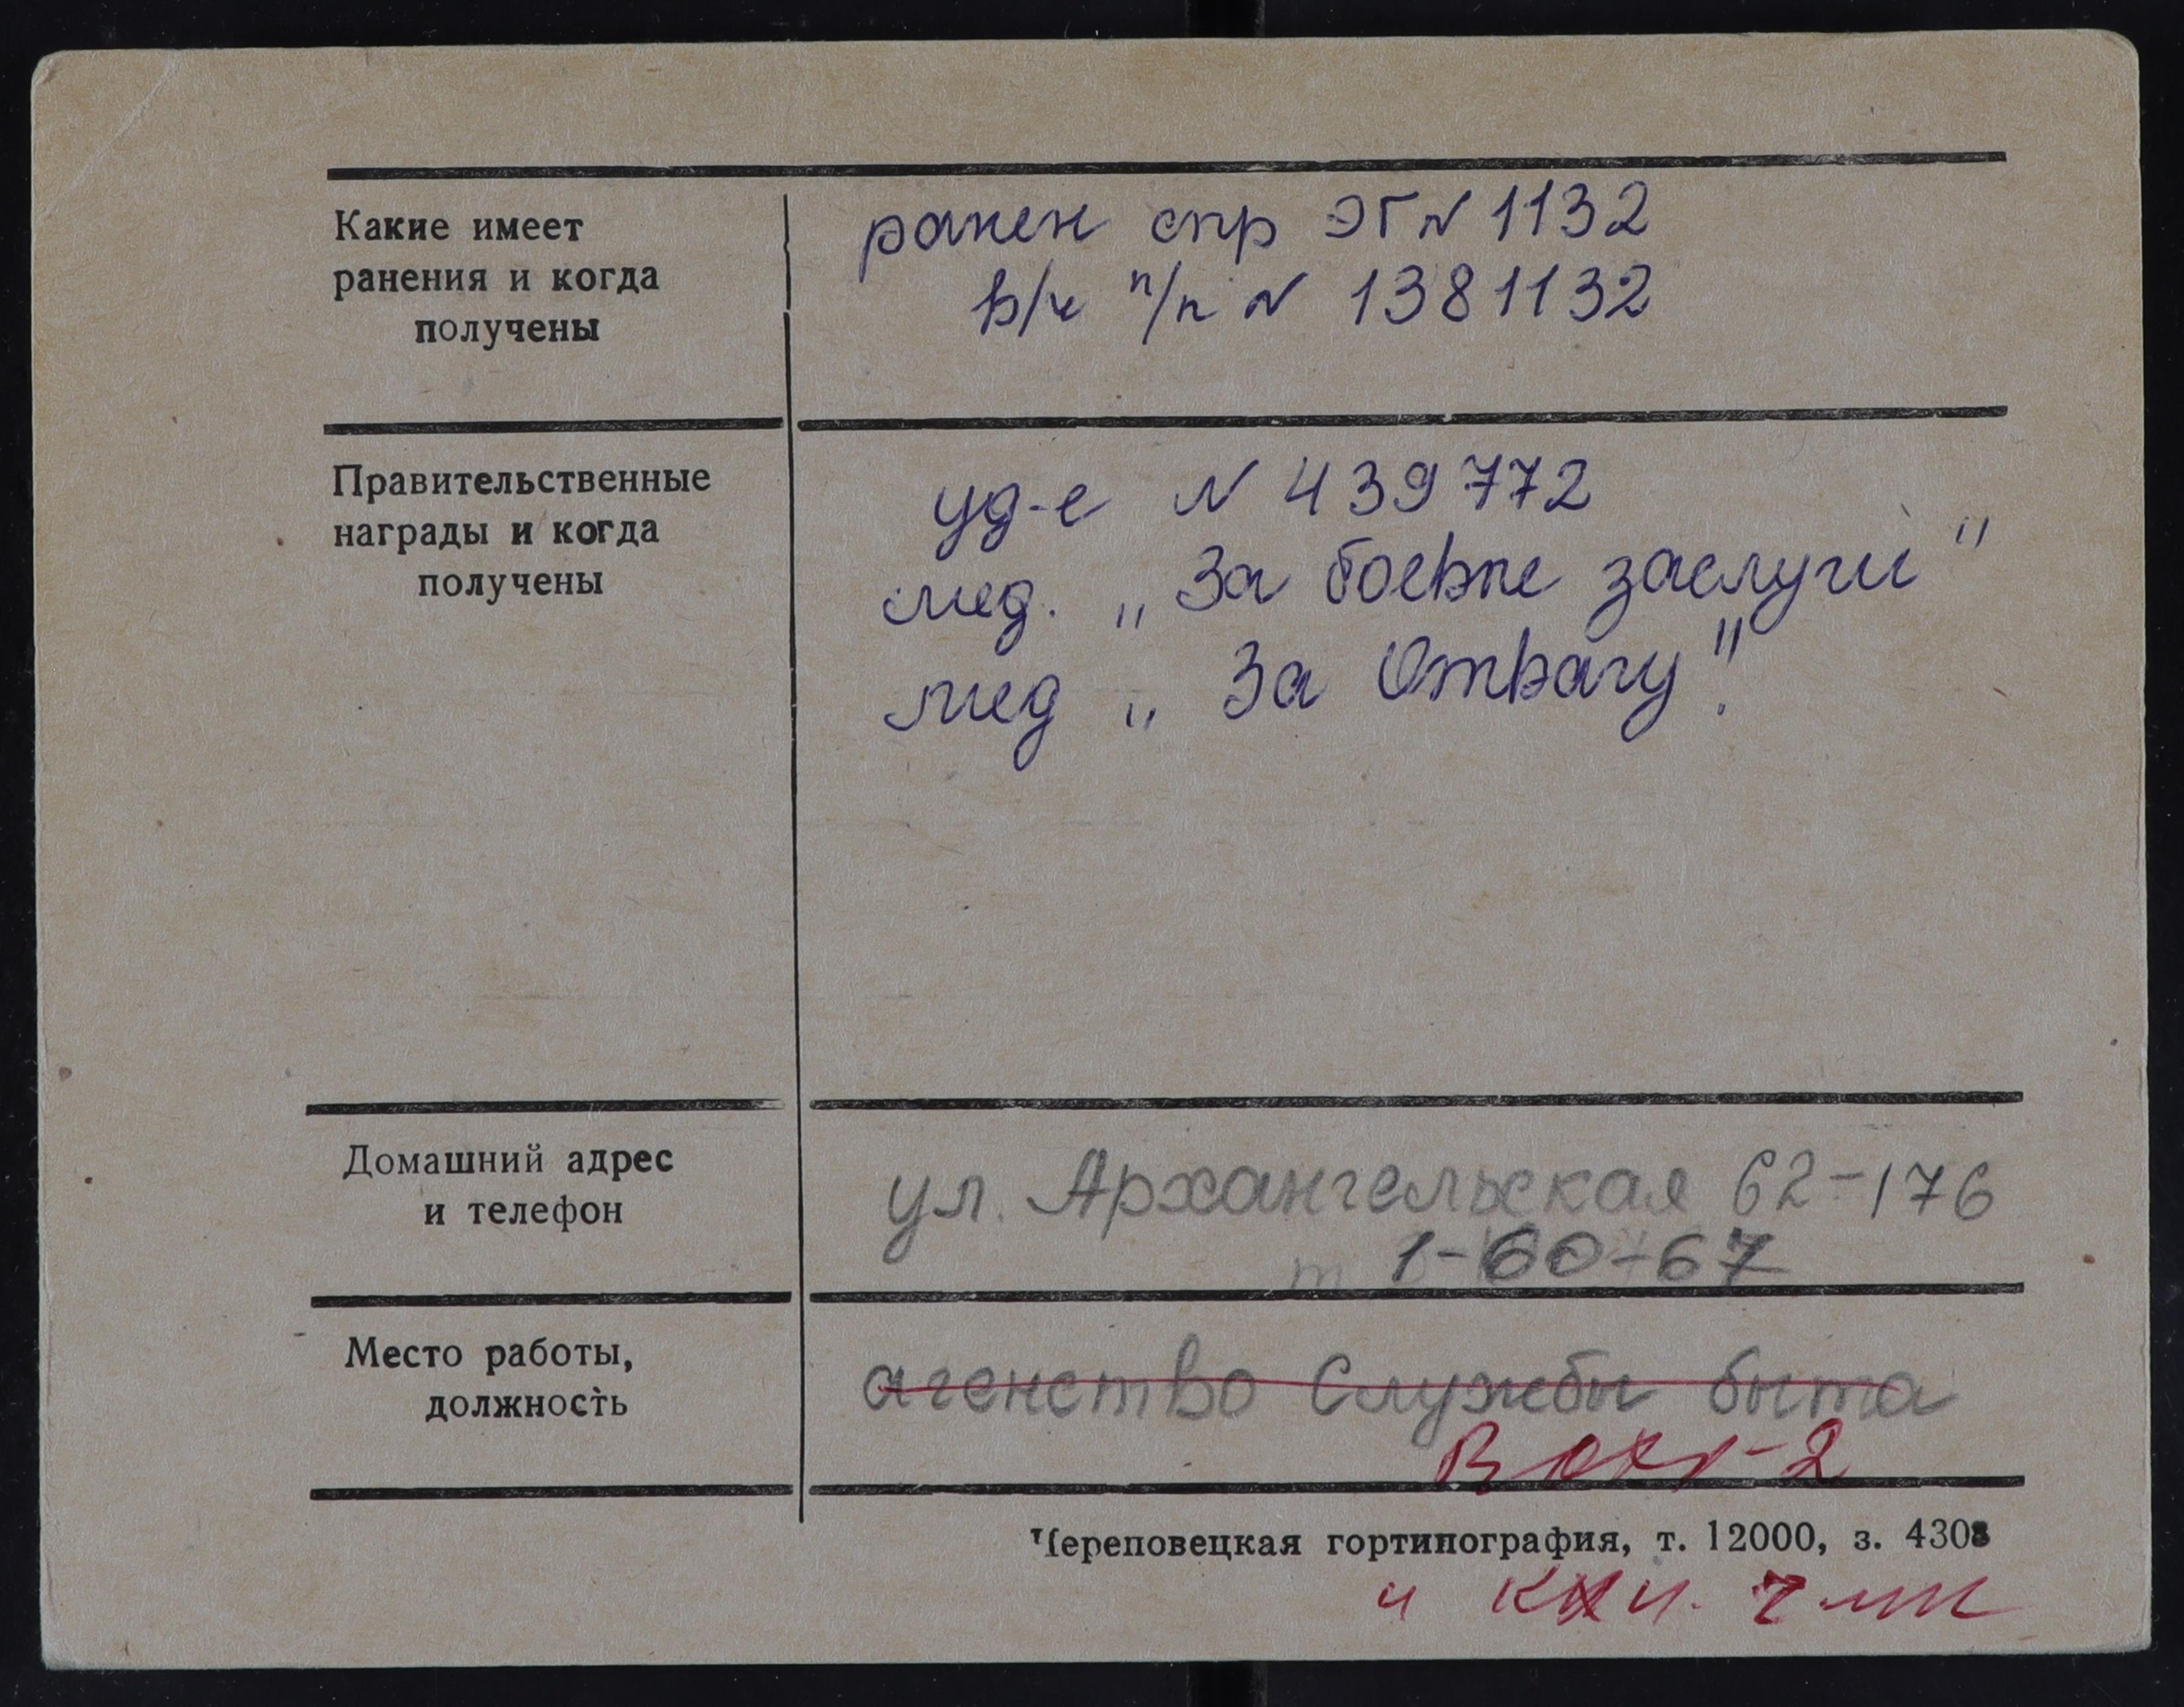 Какие имеет
ранения и когда
получены
ранен спр ЭГ N 1132
в/ч п/п N 1381132
Правительственные
награды и когда
получены
уд-е N 439772
мед. „За боевые заслуги"
мед „За Отвагу".
Домашний адрес
и телефон
ул. Архангельская 62-176
т 1-60-67
Место работы,
должность
агенство Службы быта
Вохр-2
Череповецкая гортипография, т. 12000, з. 4308
и